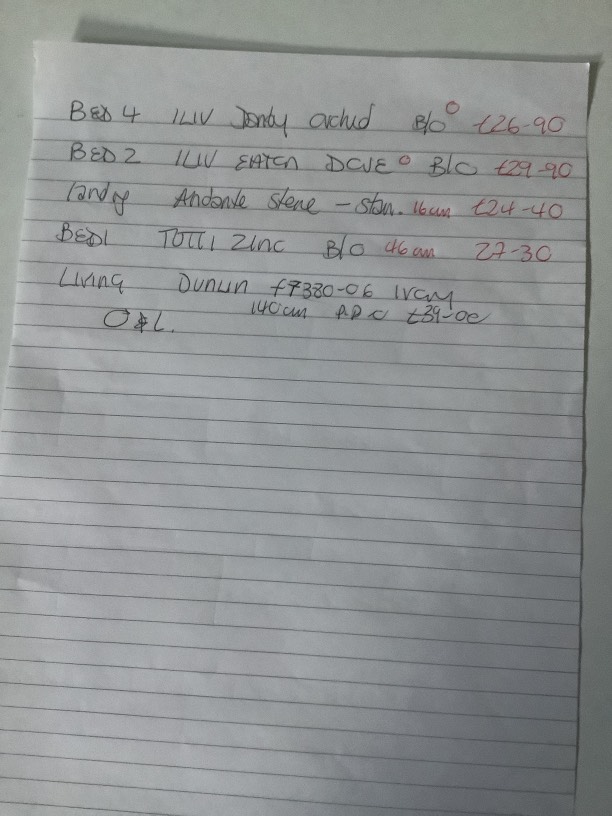 BED 4 ILIV Jandy Orchid B/O ° £26-90
BED 2 ILIV EATEN DOVE ° B/O £29-90
landg Andante Stene - Stan. 16cm £24-40
BED1 TOTTI ZINC B/O 46cm 27-30
Living Dunlin f7380-06 Ivory
O&L. 140cm £39-00